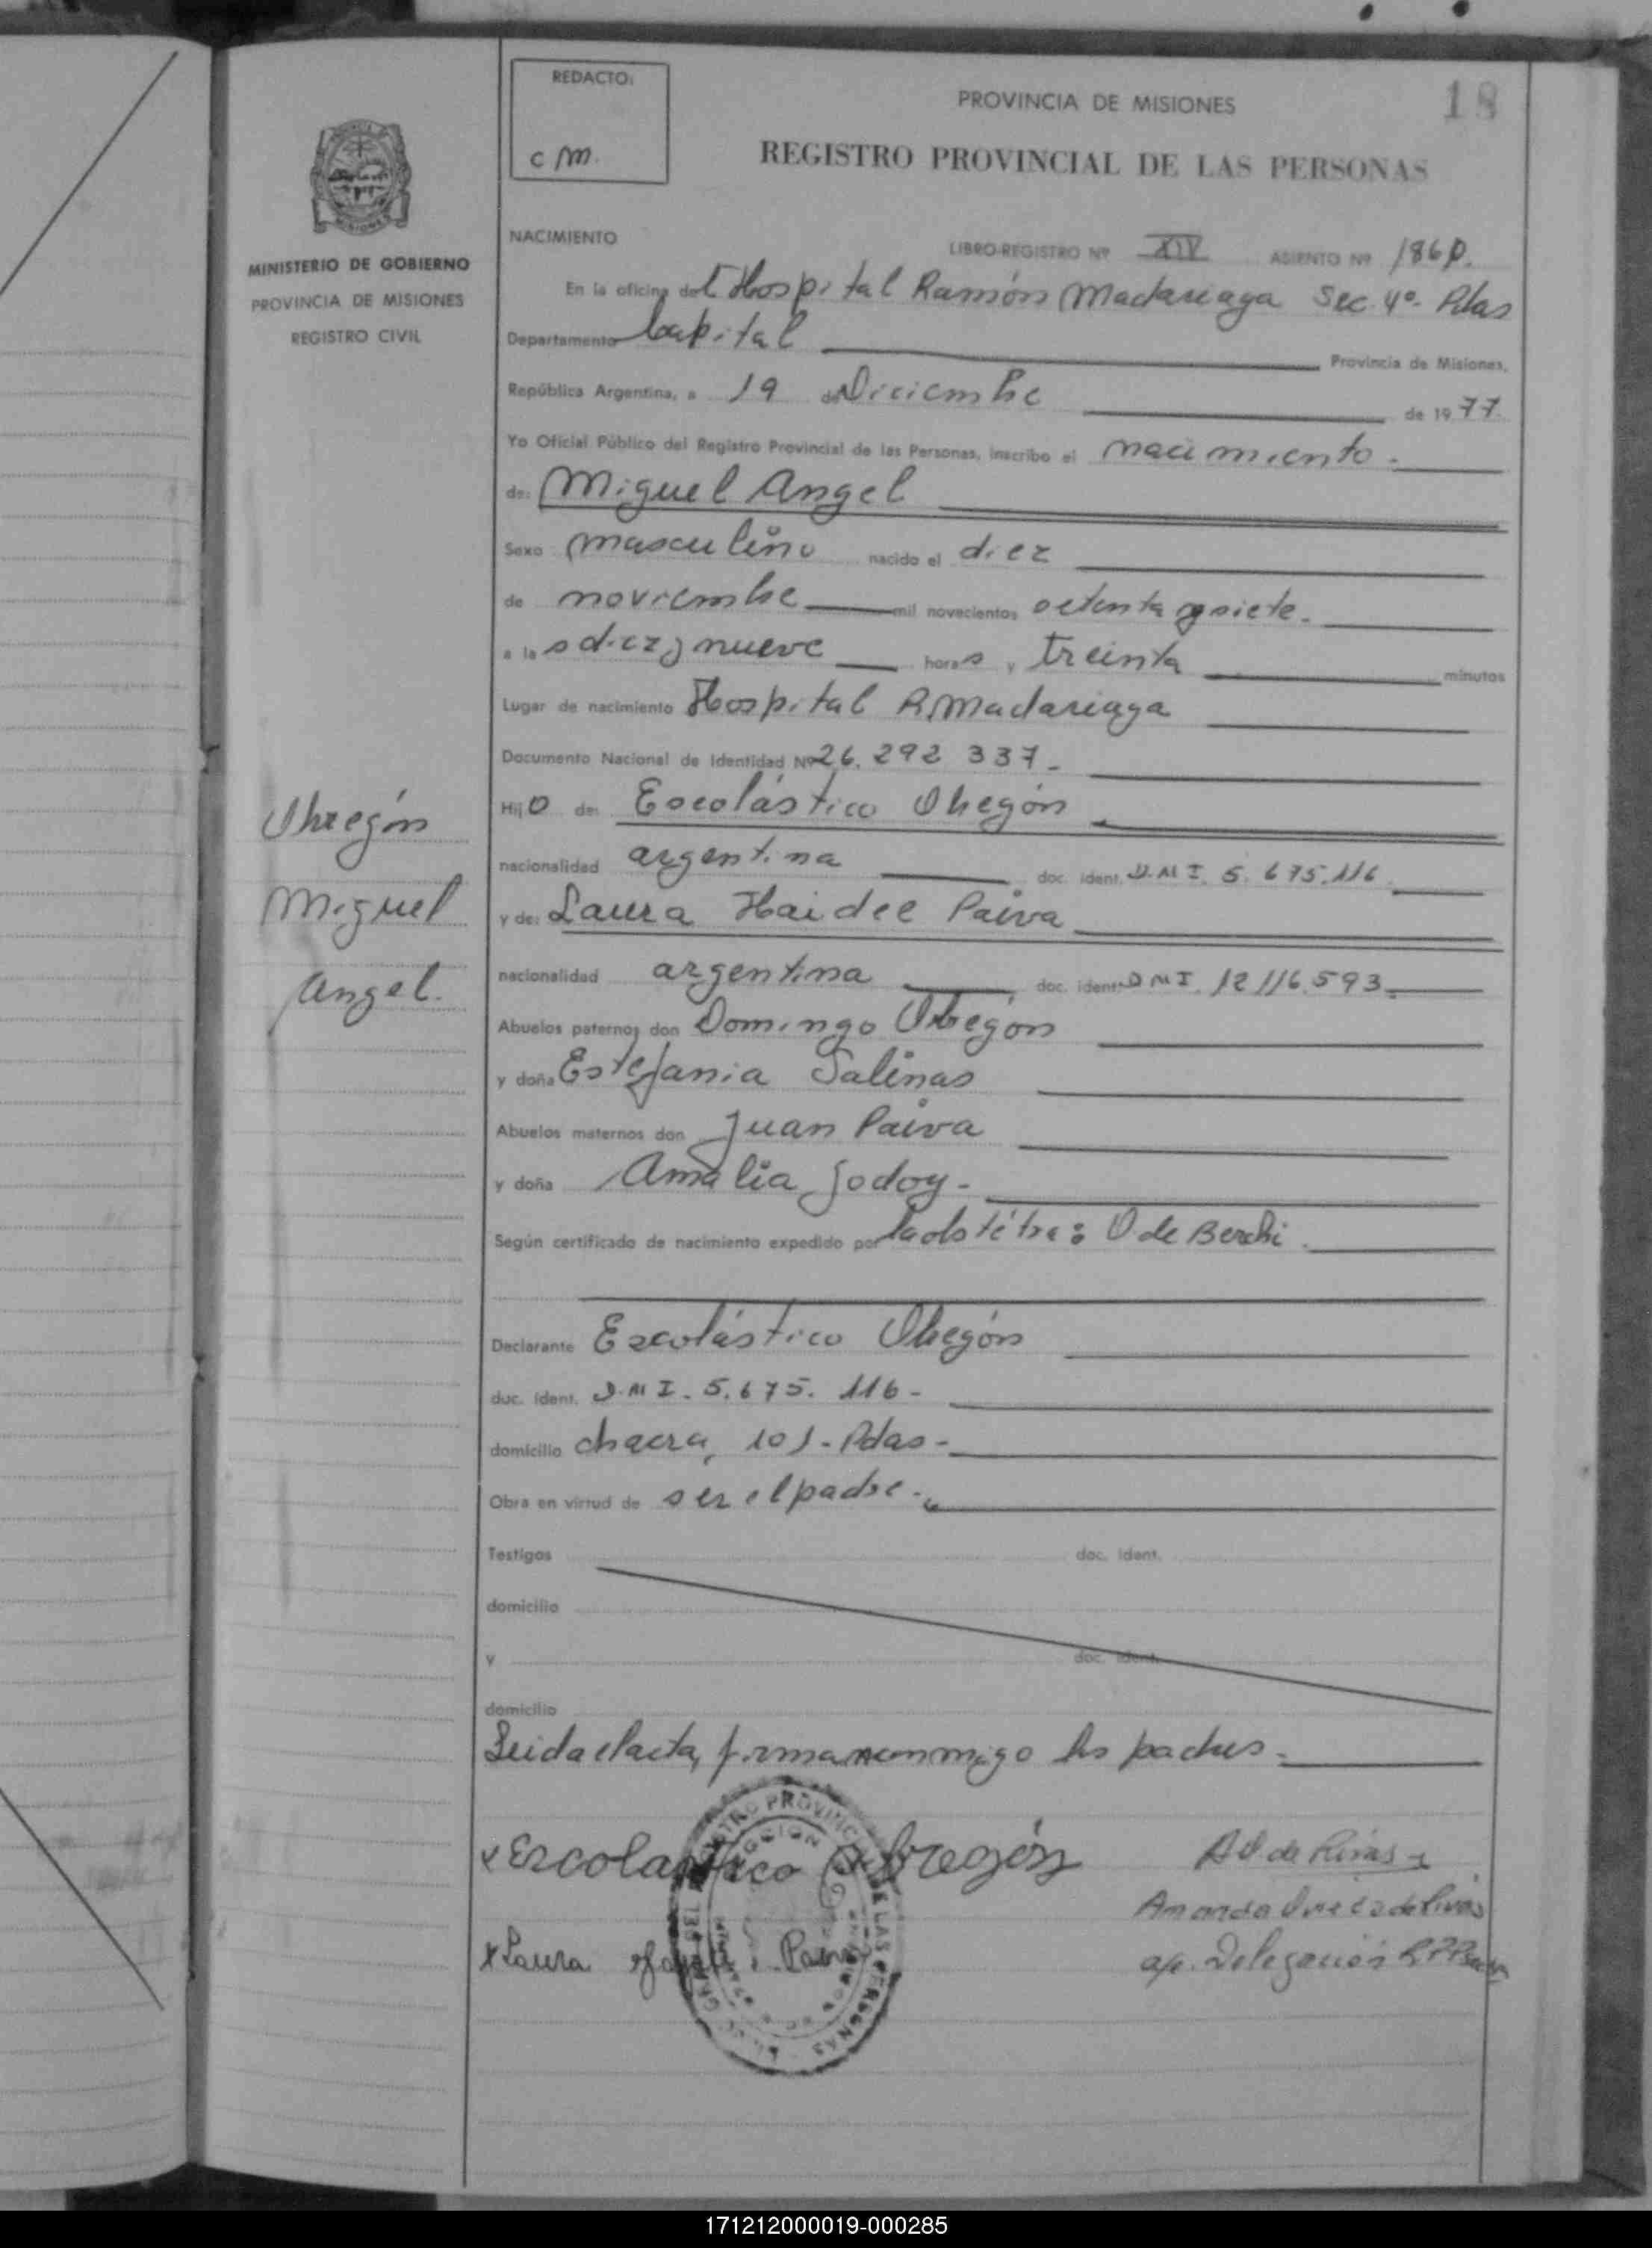 REDACTO:
c m.
PROVINCIA DE MISIONES
18
REGISTRO PROVINCIAL DE LAS PERSONAS
MINISTERIO DE GOBIERNO
PROVINCIA DE MISIONES
REGISTRO CIVIL
NACIMIENTO LIBRO-REGISTRO Nº XIV ASIENTO Nº 1860.
En la oficina del Hospital Ramón Madariaga Sec. 4º. Pdas
Departamento Capital Provincia de Misiones,
República Argentina, a 19 de Diciembre de 1977.
Yo Oficial Público del Registro Provincial de las Personas, inscribo el nacimiento.
de: Miguel Angel
Sexo masculino nacido el diez
de noviembre mil novecientos setenta y siete.
a las diez y nueve horas y treinta minutos
Lugar de nacimiento Hospital R. Madariaga
Documento Nacional de Identidad Nº 26.292 337-
Hijo de: Escolástico Obregón
nacionalidad argentina doc. ident. D.N.I. 5.675.116
y de: Laura Haidee Paiva
nacionalidad argentina doc. ident. D N I. 12 116.593.
Abuelos paternos don Domingo Obregón
y doña Estefania Salinas
Abuelos maternos don Juan Paiva
y doña Amalia Godoy-
Según certificado de nacimiento expedido por la obstétra: O. de Berchi.
Declarante Escolástico Obregón
duc. ident. D.N I. 5.675.116-
domicilio chacra, 101-Pdas-
Obra en virtud de ser el padre.
Testigos doc. ident.
domicilio
y doc. ident.
domicilio
Leida el acta, firman conmigo los padres.
Obregón
Miguel
Angel.
x Escolastico Obregón
x Laura Paiva
A O de Rivas
Amanda de Rivas
a/c. Delegación
REGISTRO PROVINCIAL DE LAS PERSONAS
171212000019-000285